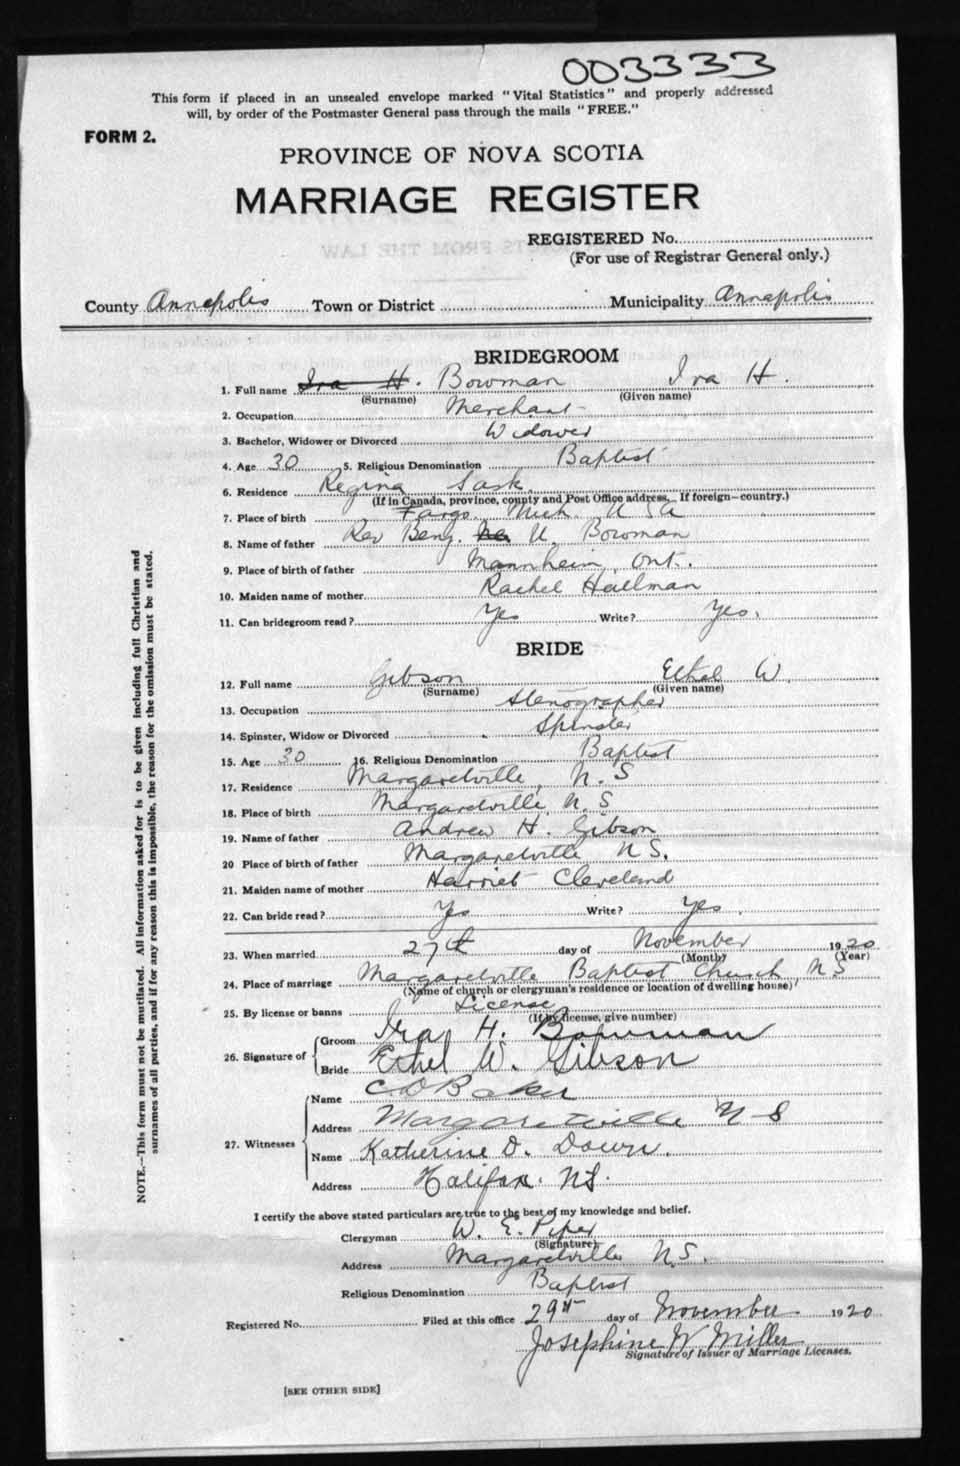 003333
This form if placed in an unsealed envelope marked "Vital Statistics" and properly addressed
will, by order of the Postmaster General pass through the mails "FREE."
FORM 2.
PROVINCE OF NOVA SCOTIA
MARRIAGE REGISTER
REGISTERED No.
(For use of Registrar General only.)
County Annapolis Town or District Municipality Annapolis
BRIDEGROOM
1. Full name Ira H. Bowman Ira H.
(Surname) (Given name)
2. Occupation Merchant
3. Bachelor, Widower or Divorced Widower
4. Age 30 5. Religious Denomination Baptist
6. Residence Regina Sask.
(If in Canada, province, county and Post Office address. If foreign—country.)
7. Place of birth Fargo. Mich. U S A
8. Name of father Rev Benj. U. Bowman
9. Place of birth of father Mannheim, Ont.
10. Maiden name of mother Rachel Hallman
11. Can bridegroom read? Yes Write? Yes.
BRIDE
12. Full name Gibson Ethel W.
(Surname) (Given name)
13. Occupation Stenographer
14. Spinster, Widow or Divorced Spinster
15. Age 30 16. Religious Denomination Baptist
17. Residence Margaretville, N. S
18. Place of birth Margaretville, N. S
19. Name of father Andrew H. Gibson
20 Place of birth of father Margaretville N S.
21. Maiden name of mother Harriet Cleveland
22. Can bride read? Yes Write? Yes.
23. When married 27th day of November 1920
(Month) (Year)
24. Place of marriage Margaretville Baptist Church, N S
(Name of church or clergyman's residence or location of dwelling house)
25. By license or banns License
(If by license, give number)
26. Signature of Groom Ira H. Bowman
Bride Ethel W. Gibson
27. Witnesses Name C. D Baker
Address Margaretville N S
Name Katherine D.
Address Halifax. N.S.
I certify the above stated particulars are true to the best of my knowledge and belief.
Clergyman W. E. Piper
(Signature)
Address Margaretville N.S.
Religious Denomination Baptist
Registered No. Filed at this office 29th day of November 1920
Josephine W Miller
Signature of Issuer of Marriage Licenses.
[SEE OTHER SIDE]
NOTE.—This form must not be mutilated. All information asked for is to be given including full Christian and
surnames of all parties, and if for any reason this is impossible, the reason for the omission must be stated.